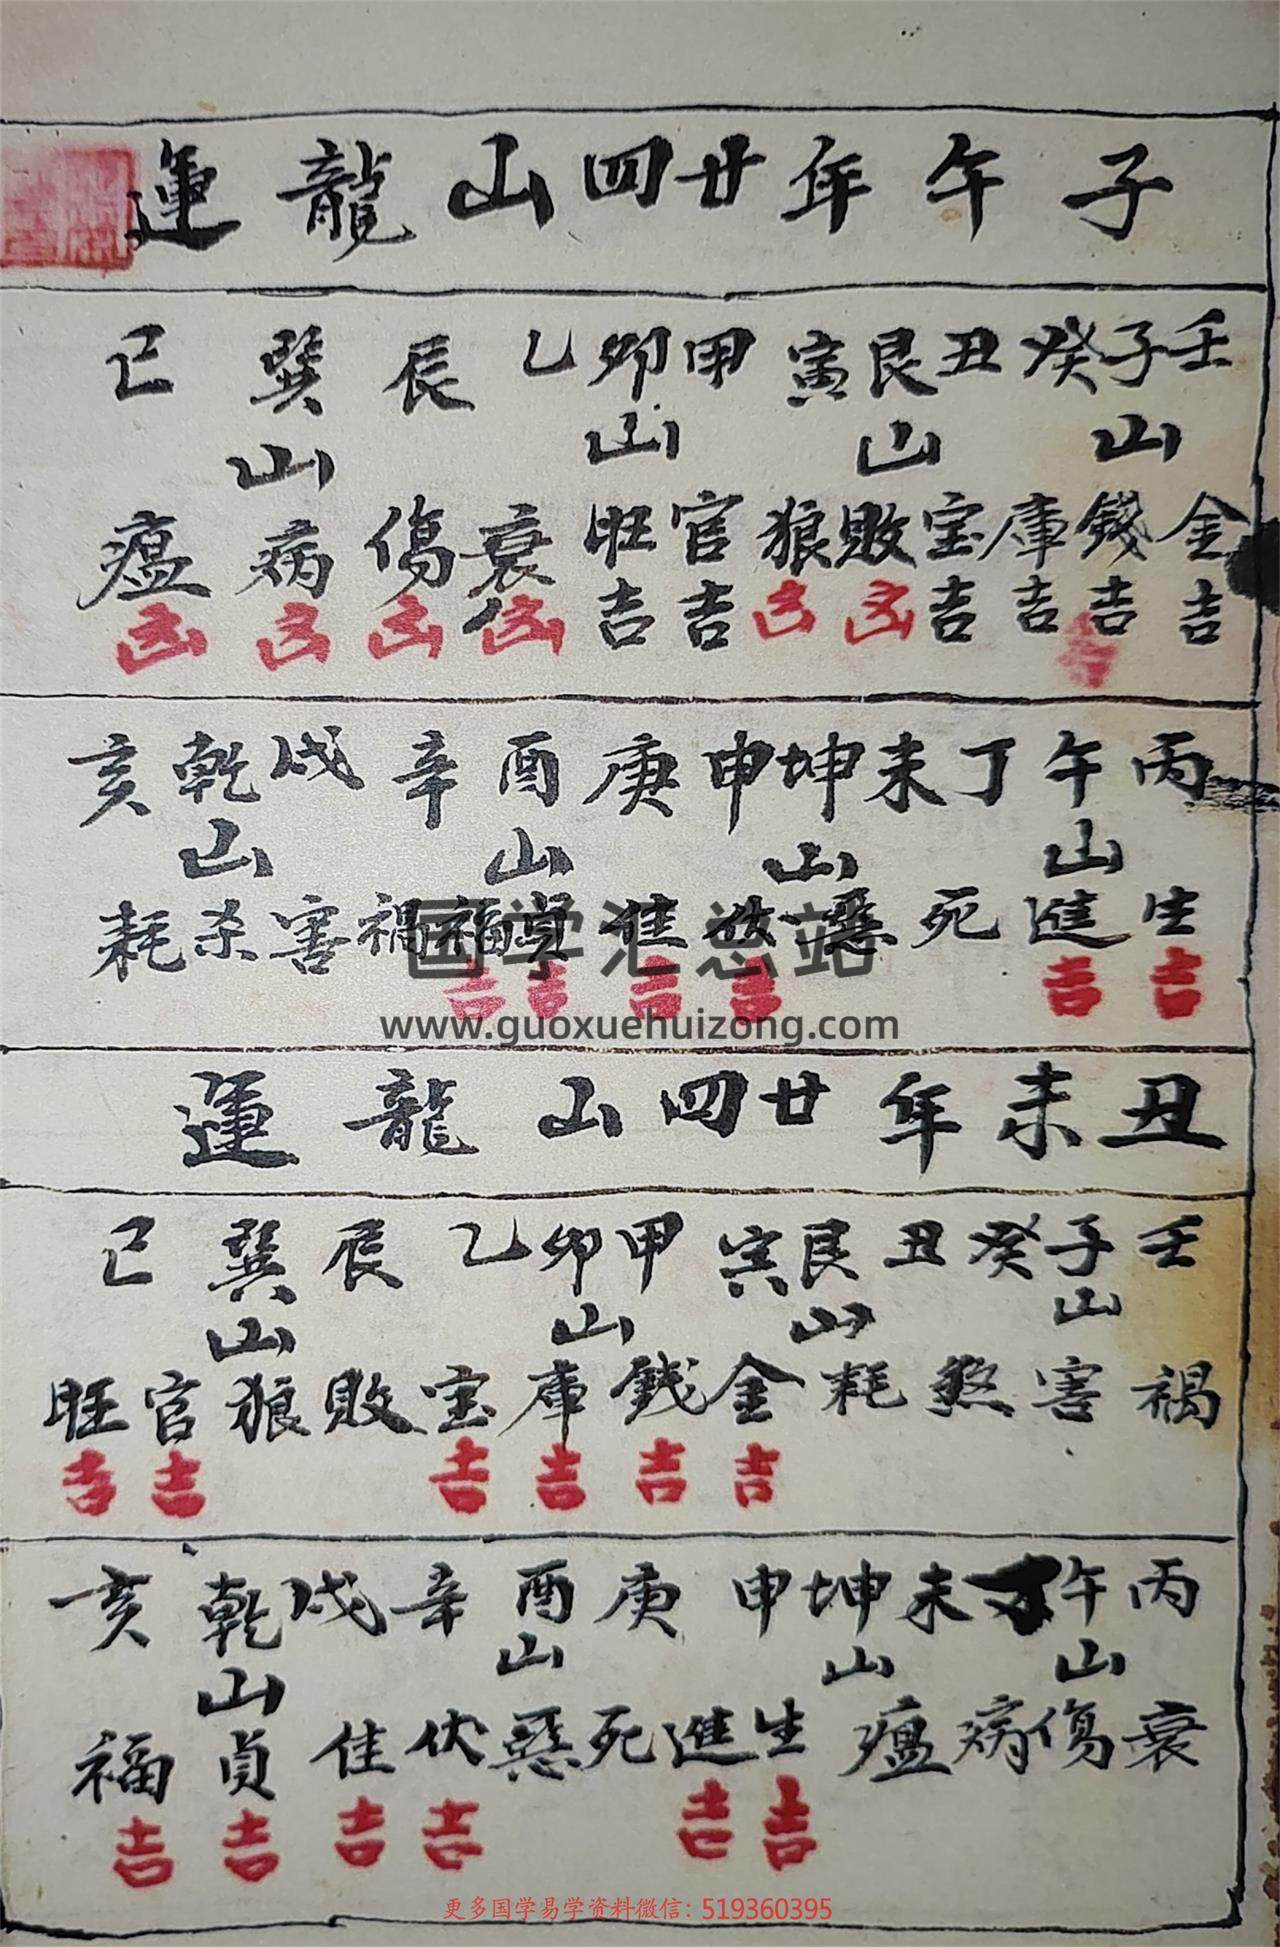 子午年廿四山龍運
壬子癸丑艮寅甲卯乙辰巽巳
山山山山
金錢庫宝敗狼官旺衰傷病瘟
吉吉吉吉凶凶吉吉凶凶凶凶
丙午丁未坤申庚酉辛戌乾亥
山山山山
生進死惡伏佳貞福禍害杀耗
吉吉吉吉吉吉
丑未年廿四山龍運
壬子癸丑艮寅甲卯乙辰巽巳
山山山山
禍害煞耗金錢庫宝敗狼官旺
吉吉吉吉吉吉
丙午丁未坤申庚酉辛戌乾亥
山山山山
衰傷病瘟生進死惡伏佳貞福
吉吉吉吉吉吉
国学汇总站
www.guoxuehuizong.com
更多国学易学资料微信：519360395